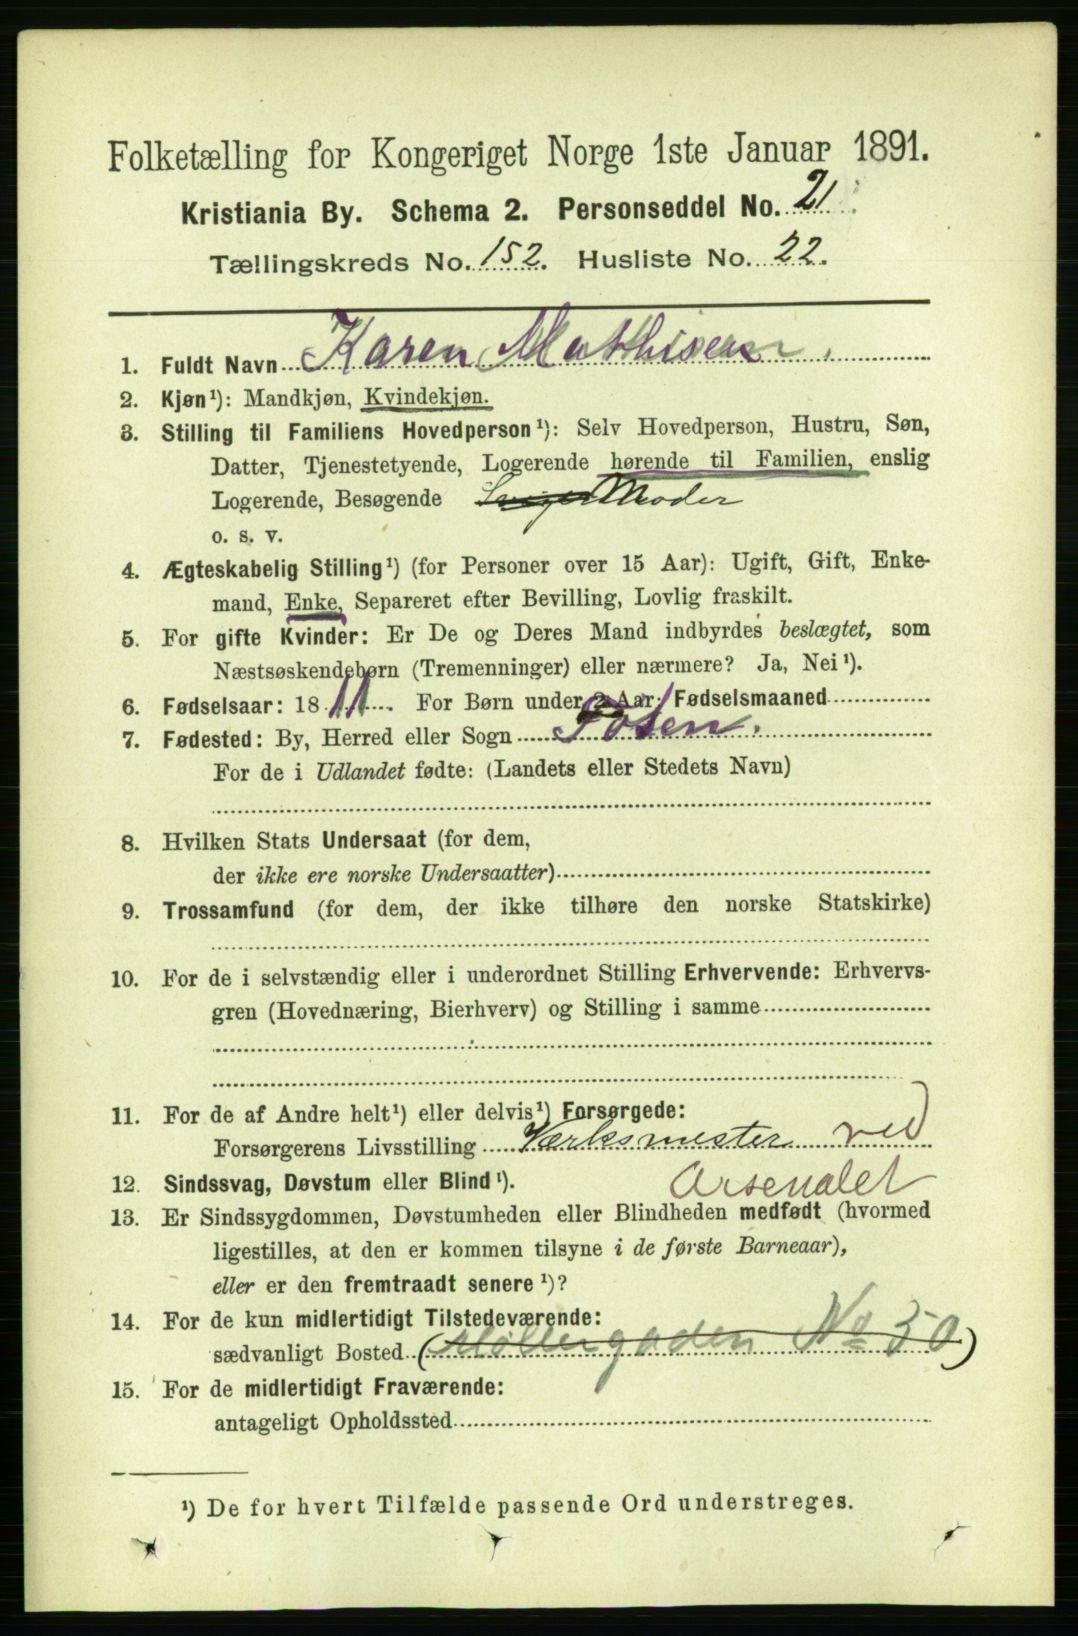 Folketælling for Kongeriget Norge 1ste Januar 1891.
Kristiania By. Schema 2. Personseddel No. 21
Tællingskreds No. 152. Husliste No. 22.
1. Fuldt Navn Karen Mathisen.
2. Kjøn¹): Mandkjøn, Kvindekjøn.
3. Stilling til Familiens Hovedperson¹): Selv Hovedperson, Hustru, Søn,
Datter, Tjenestetyende, Logerende hørende til Familien, enslig
Logerende, Besøgende Sviger Moder
o. s. v.
4. Ægteskabelig Stilling¹) (for Personer over 15 Aar): Ugift, Gift, Enke-
mand, Enke, Separeret efter Bevilling, Lovlig fraskilt.
5. For gifte Kvinder: Er De og Deres Mand indbyrdes beslægtet, som
Næstsøskendebørn (Tremenninger) eller nærmere? Ja, Nei¹).
6. Fødselsaar: 1811. For Børn under 2 Aar: Fødselsmaaned
7. Fødested: By, Herred eller Sogn Toten.
For de i Udlandet fødte: (Landets eller Stedets Navn)
8. Hvilken Stats Undersaat (for dem,
der ikke ere norske Undersaatter)
9. Trossamfund (for dem, der ikke tilhøre den norske Statskirke)
10. For de i selvstændig eller i underordnet Stilling Erhvervende: Erhvervs-
gren (Hovednæring, Bierhverv) og Stilling i samme
11. For de af Andre helt¹) eller delvis¹) Forsørgede:
Forsørgerens Livsstilling Værksmester ved
Arsenalet
12. Sindssvag, Døvstum eller Blind¹).
13. Er Sindssygdommen, Døvstumheden eller Blindheden medfødt (hvormed
ligestilles, at den er kommen tilsyne i de første Barneaar),
eller er den fremtraadt senere¹)?
14. For de kun midlertidigt Tilstedeværende:
sædvanligt Bosted (Møllergaden No 50)
15. For de midlertidigt Fraværende:
antageligt Opholdssted
¹) De for hvert Tilfælde passende Ord understreges.